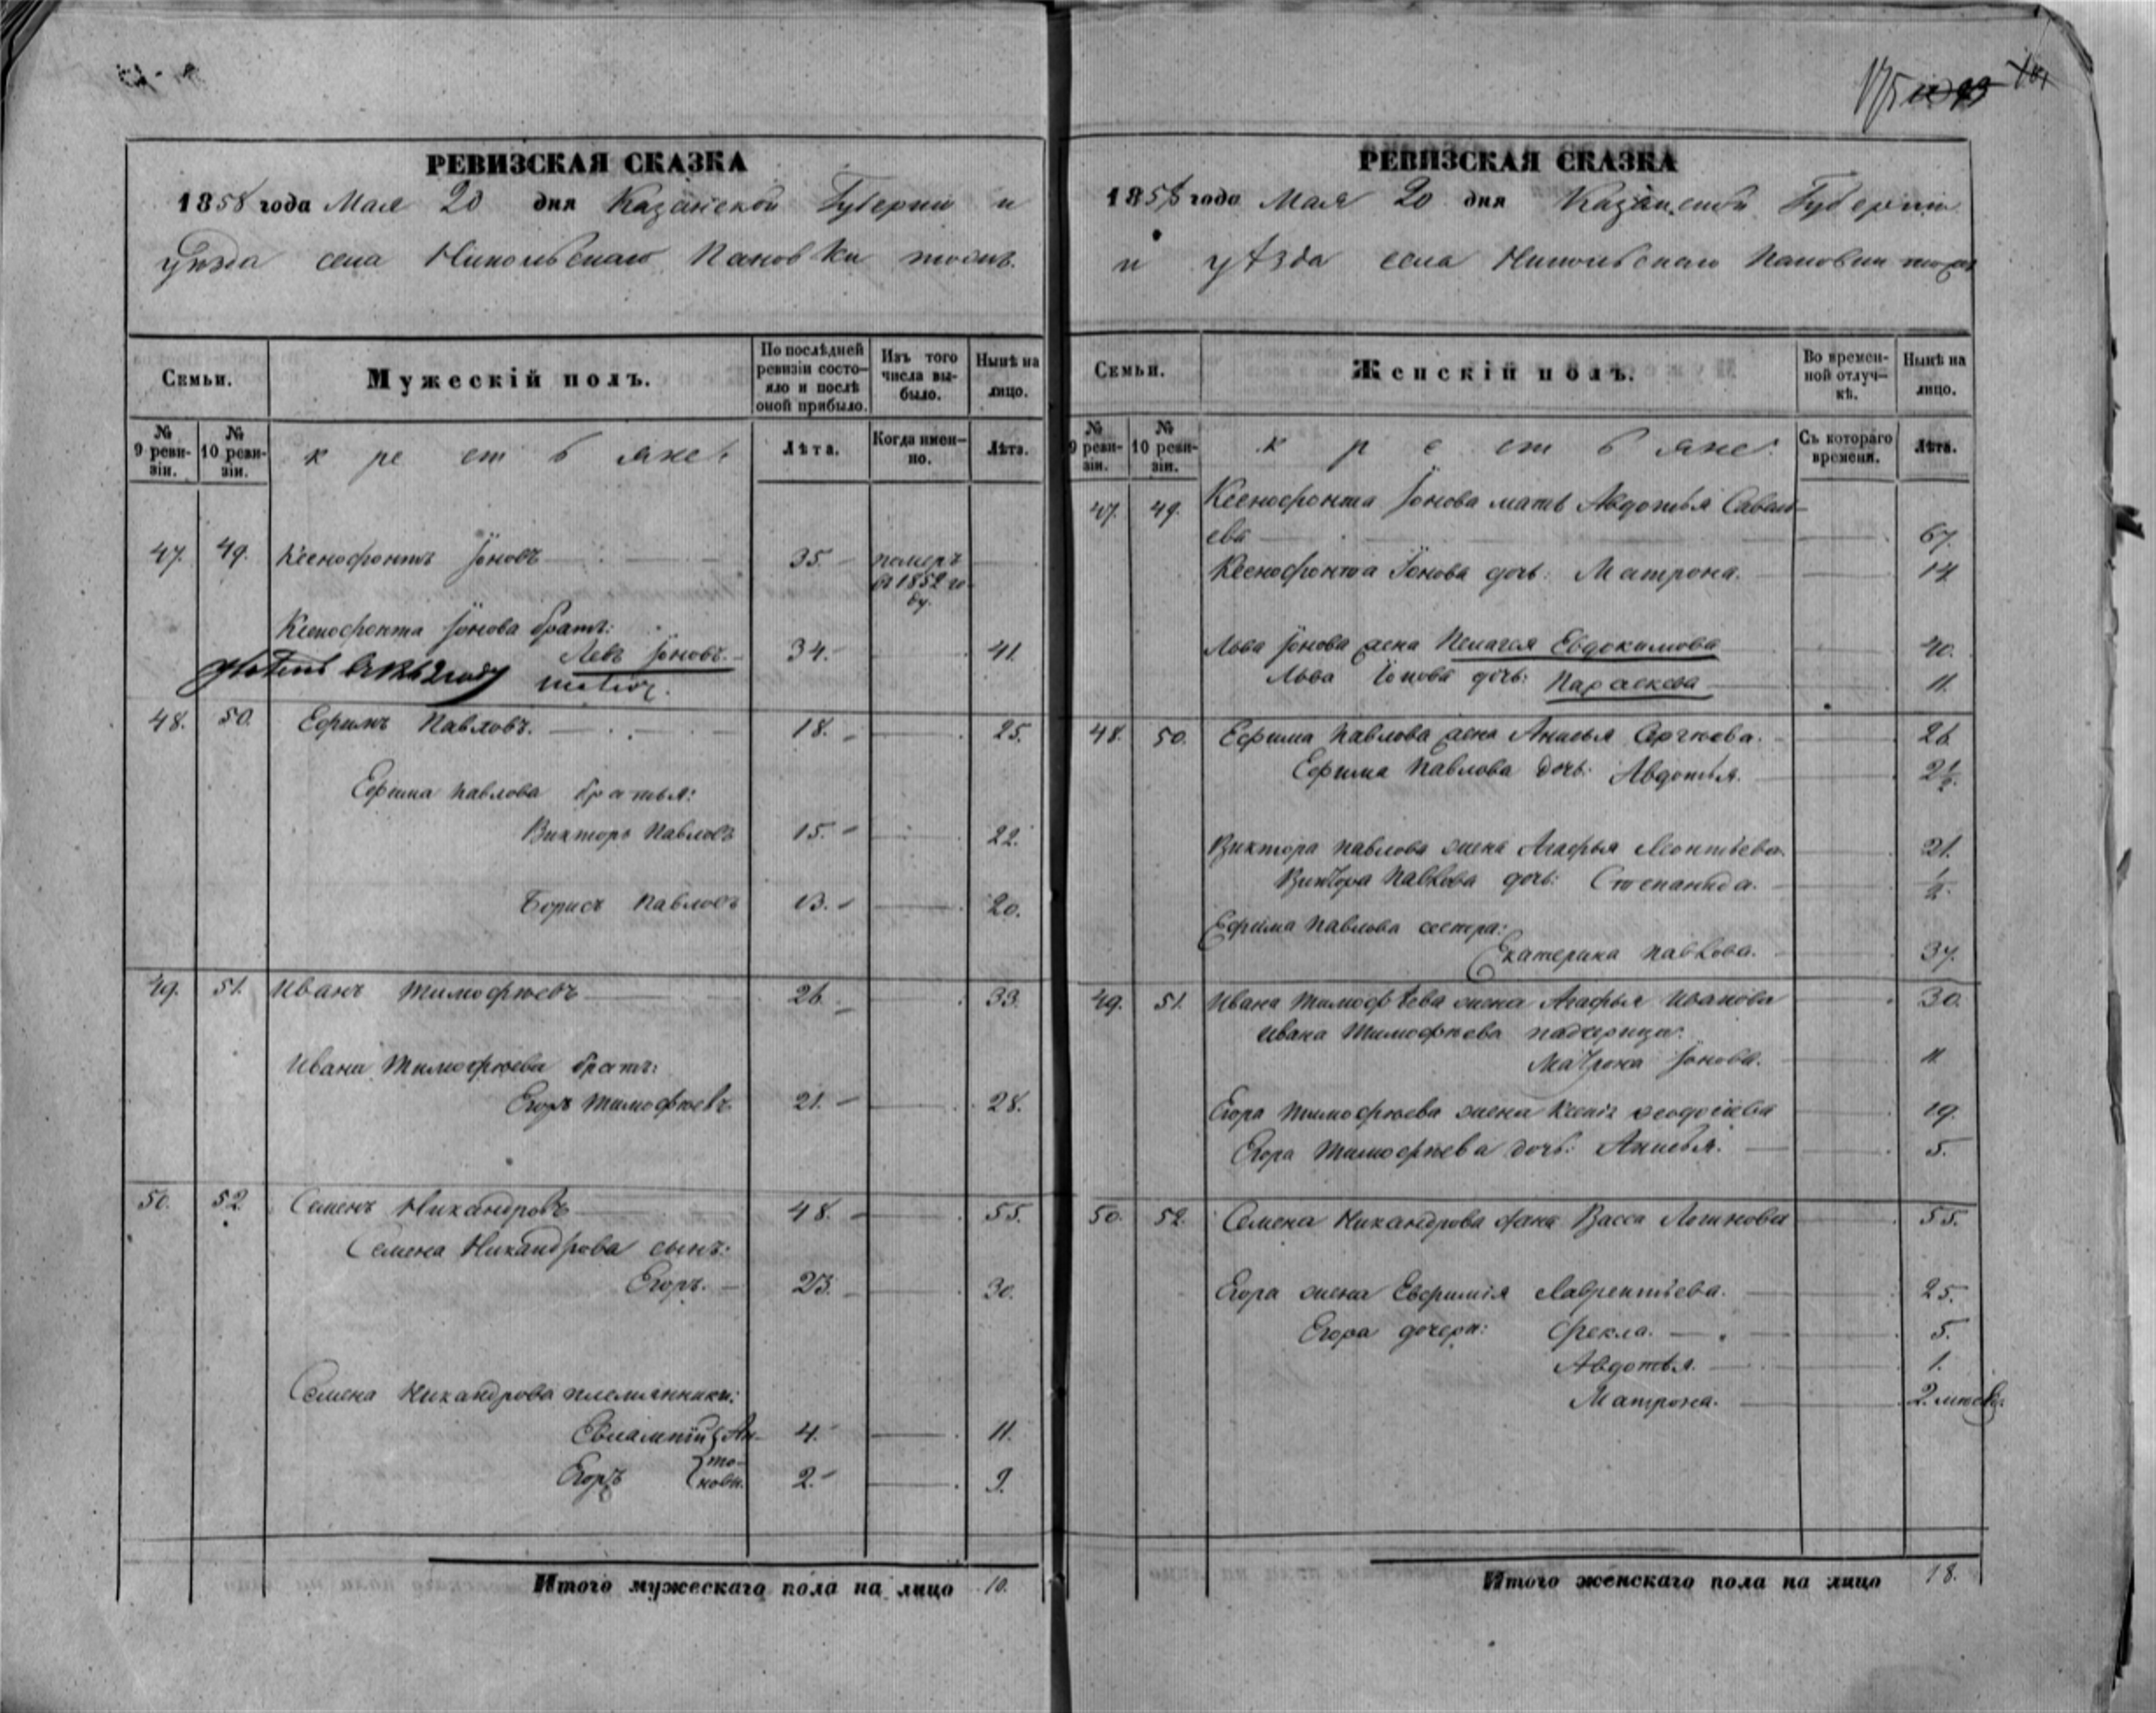 РЕВИЗСКАЯ СКАЗКА
1858 года Мая 20 дня Казанской Губерніи и
уѣзда села Никольскаго Пановки тожъ.
Семьи.
Мужескій полъ.
По послѣдней ревизіи состо-
яло и послѣ
оной прибыло.
Изъ того
числа вы-
было.
Нынѣ на
лицо.
№
9 реви-
зіи.
№
10 реви-
зіи.
крестьяне:
Лѣта.
Когда имен-
но.
Лѣта.
47. 49. Ксенофонтъ Іоновъ 35. померъ
въ 1852 го-
ду.
Ксенофонта Іонова братъ:
Левъ Іоновъ. 34. 41.
48. 50. Ефимъ Павловъ. 18. 25.
Ефима Павлова братья:
Викторъ Павловъ 15. 22.
Борисъ Павловъ 13. 20.
49. 51. Иванъ Тимофѣевъ 26. 33.
Ивана Тимофѣева братъ:
Егоръ Тимофѣевъ 21. 28.
50. 52. Семенъ Никандровъ 48. 55.
Семена Никандрова сынъ:
Егоръ. 23. 30.
Семена Никандрова племянники:
Евлампій Ан- 4. 11.
Егоръ то-
новы. 2. 9.
Итого мужескаго пола на лицо 10.
175
РЕВИЗСКАЯ СКАЗКА
1858 года Мая 20 дня Казанской Губерніи
и уѣзда села Никольскаго Пановки тожъ
Семьи.
Женскій полъ.
Во времен-
ной отлуч-
кѣ.
Нынѣ на
лицо.
№
9 реви-
зіи.
№
10 реви-
зіи.
крестьяне:
Съ котораго
времени.
Лѣта.
47. 49. Ксенофонта Іонова мать Авдотья Савель-
ева 67.
Ксенофонта Іонова дочь: Матрона. 14
Льва Іонова жена Пелагея Евдокимова 40.
Льва Іонова дочь: Параскева 11.
48. 50. Ефима Павлова жена Анисья Сергѣева. 26
Ефима Павлова дочь: Авдотья. 2½.
Виктора Павлова жена Агафья Леонтьева. 21.
Виктора Павлова дочь: Степанида. ½.
Ефима Павлова сестра:
Екатерина Павлова. 37.
49. 51. Ивана Тимофѣева жена Агафья Иванова 30.
Ивана Тимофѣева падчерица:
Матрона Іонова. 11
Егора Тимофѣева жена Ксенія Феодосіева 19.
Егора Тимофѣева дочь: Анисья. 5.
50. 52. Семена Никандрова жена Васса Логинова 55.
Егора жена Евфимія Лаврентьева. 25.
Егора дочери: Фекла. 5.
Авдотья. 1.
Матрона. 2 мѣсяц.
Итого женскаго пола на лицо 18.